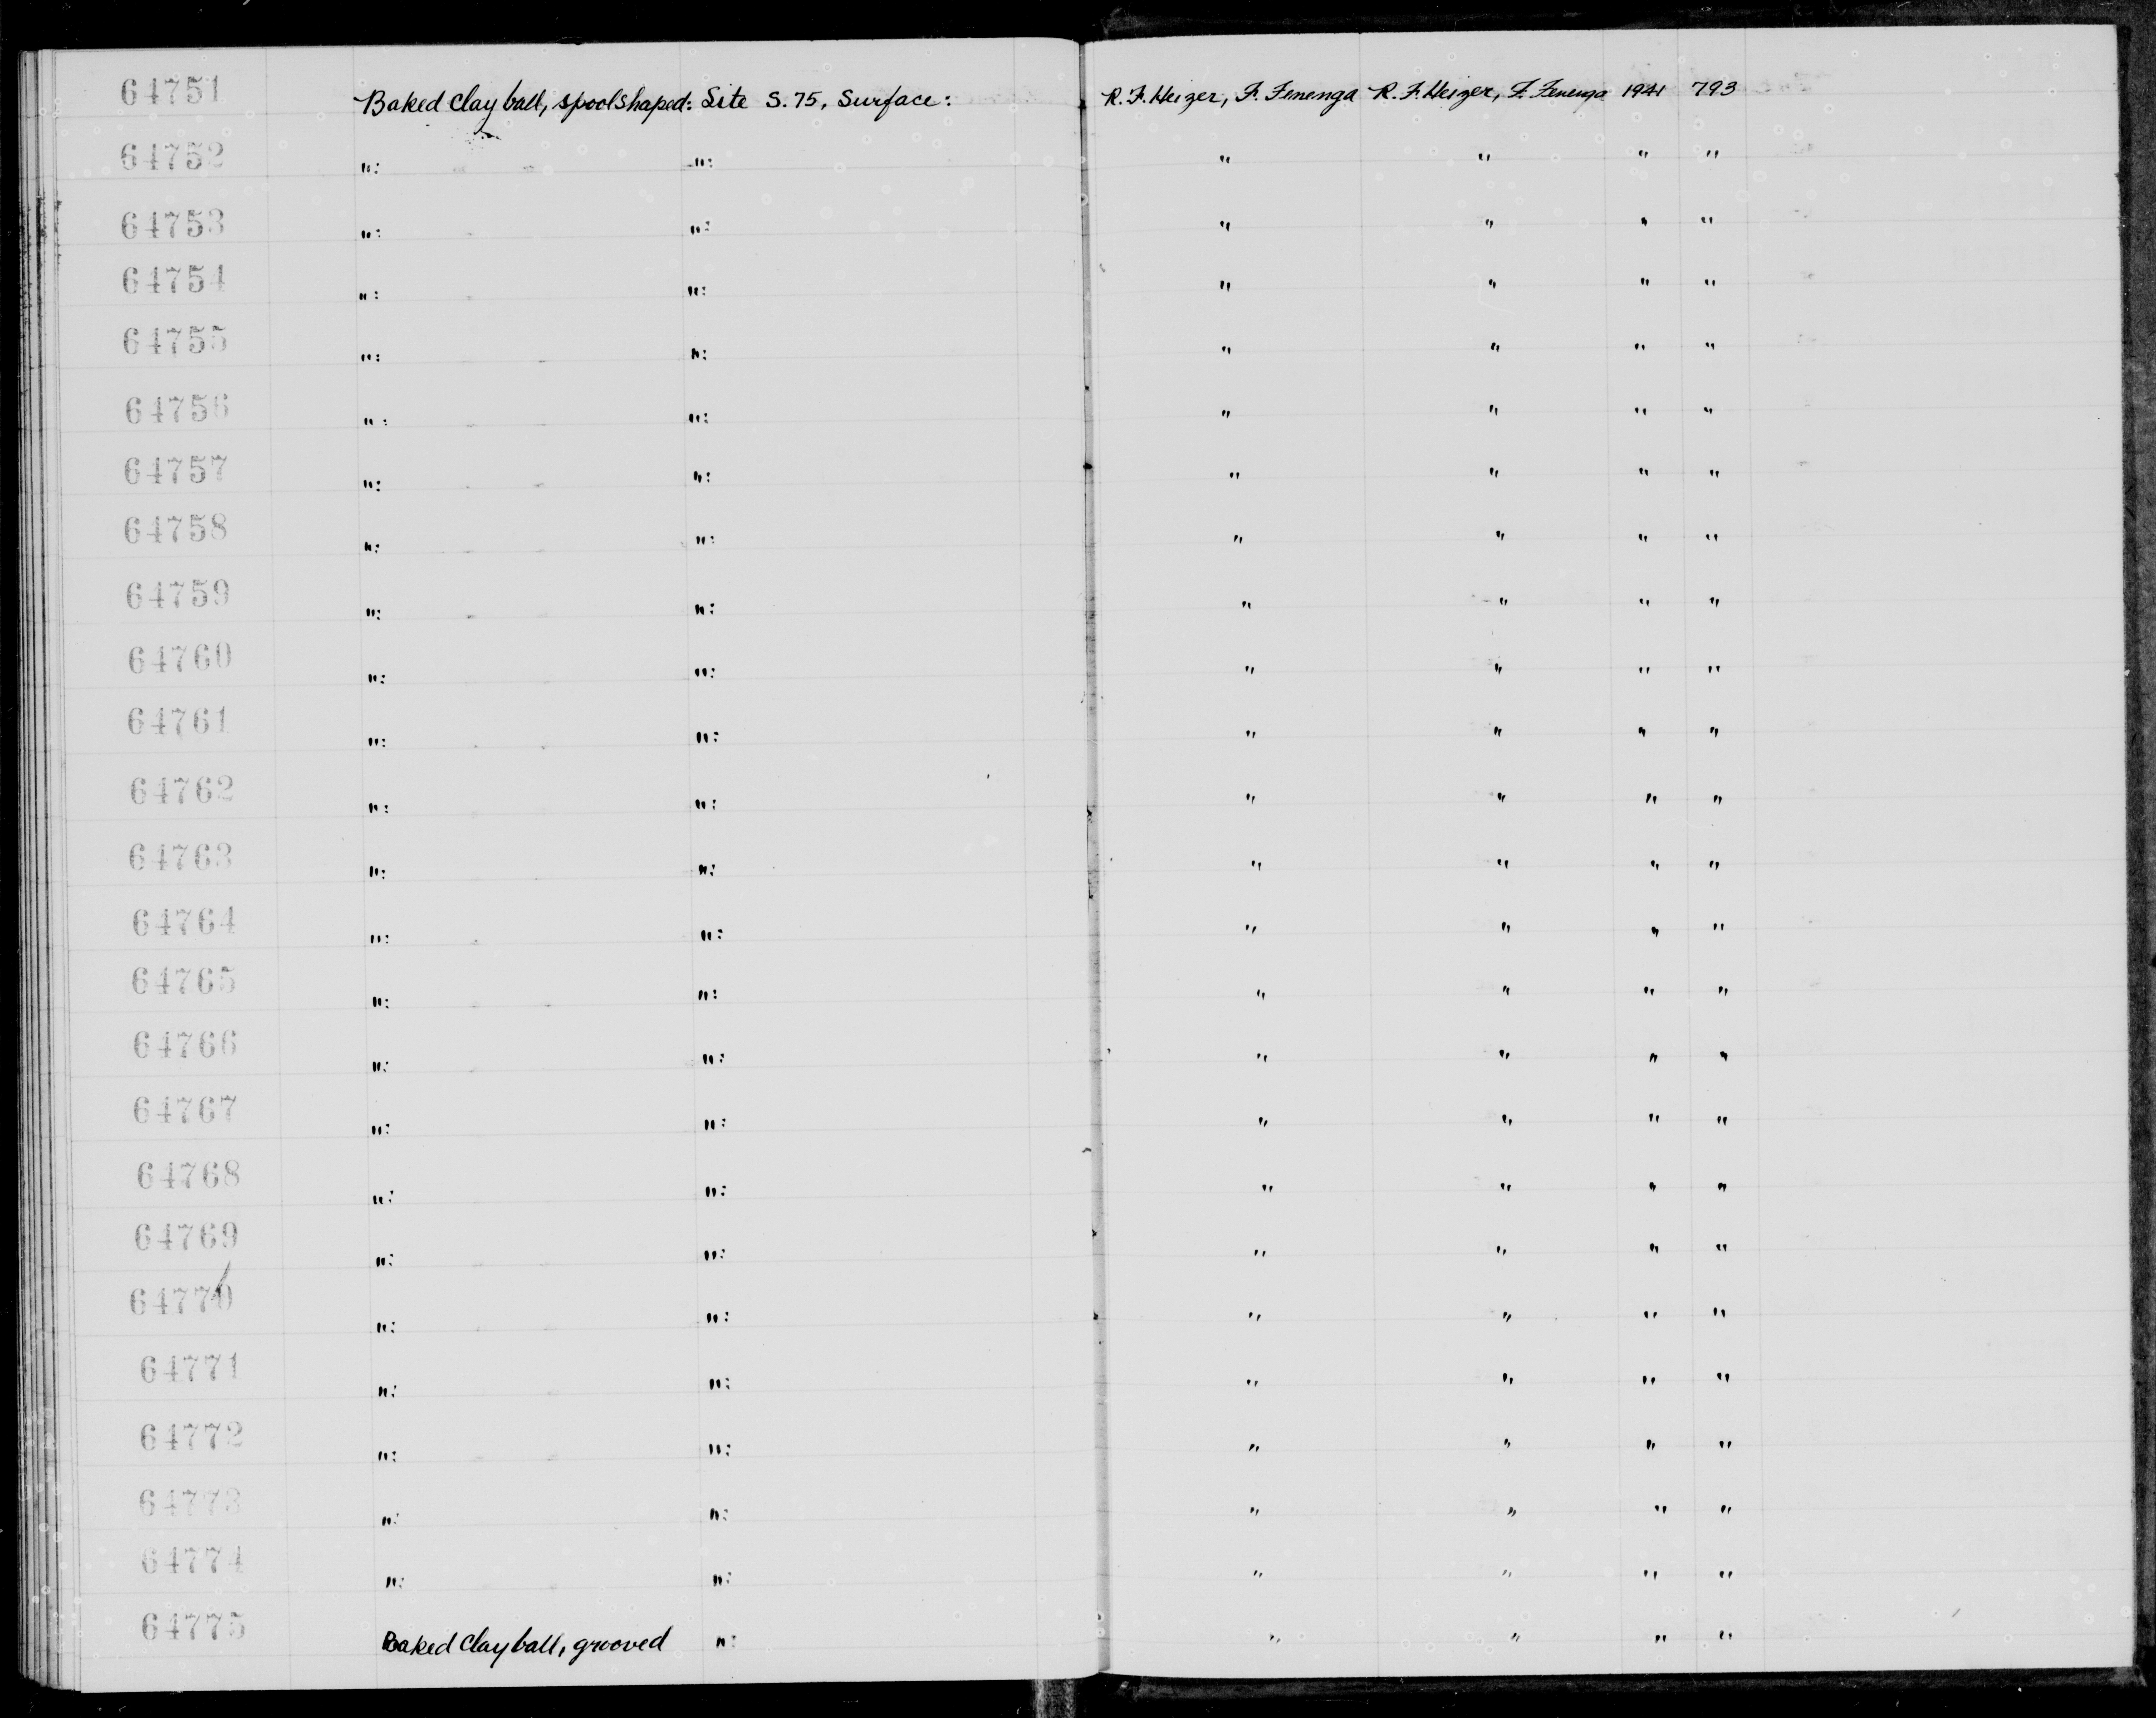 64751 Baked clay ball, spool shaped: Site S. 75, Surface: R. F. Heizer, F. Fenenga R. F. Heizer, F. Fenenga 1941 793
64752 ": ": " " " "
64753 ": ": " " " "
64754 ": ": " " " "
64755 ": ": " " " "
64756 ": ": " " " "
64757 ": ": " " " "
64758 ": ": " " " "
64759 ": ": " " " "
64760 ": ": " " " "
64761 ": ": " " " "
64762 ": ": " " " "
64763 ": ": " " " "
64764 ": ": " " " "
64765 ": ": " " " "
64766 ": ": " " " "
64767 ": ": " " " "
64768 ": ": " " " "
64769 ": ": " " " "
64770 ": ": " " " "
64771 ": ": " " " "
64772 ": ": " " " "
64773 ": ": " " " "
64774 ": ": " " " "
64775 Baked clay ball, grooved ": " " " "